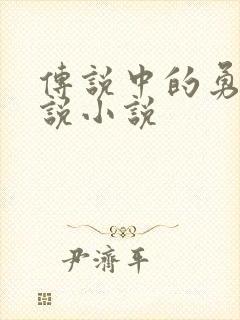 傳說中的勇
說小說
尹濟平